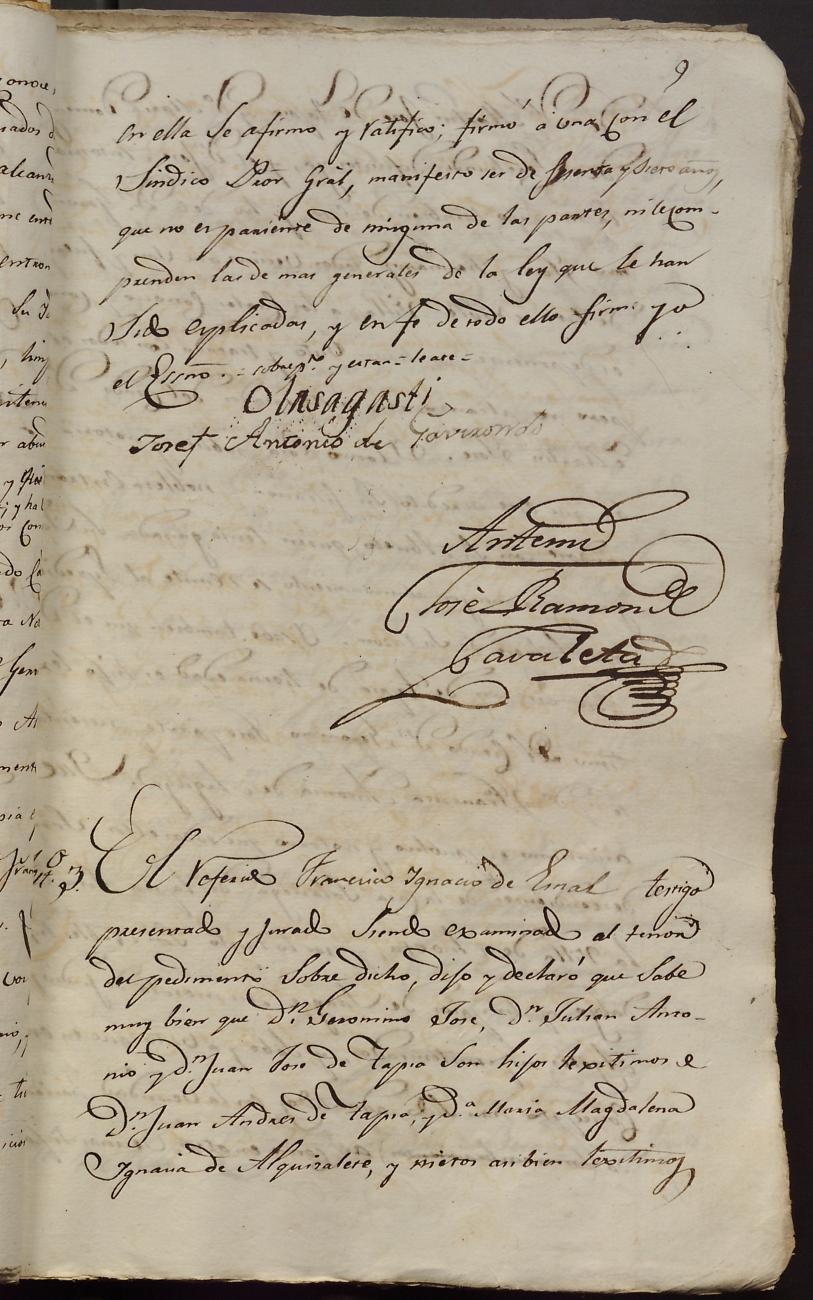 9
en ella se afirmo y ratifico; firmó á una con el
Sindico Pròr Gràl, manifesto ser de sesenta y siete años,
que no es pariente de ninguna de las partes, ni le com-
prenden las de mas generales de la ley que le han
sido esplicadas, y en fe de todo ello firme yo
el Essno. = sobre ptº y estan = leate =
Olasagasti
Josef Antonio de Gavirondo
Antemi
José Ramon de
Zavaleta
tº 3º
El referido Francisco Ignacio de Emal testigo
presentado y jurado siendo examinado al tenor
del pedimento sobre dicho, dijo y declaró que sabe
muy bien que Dn. Geronimo Jose, Dn. Julian Anto-
nio y dn. Juan Jose de Tapia son hijos lexitimos de
Dn. Juan Andres de Tapia, y Da. Maria Magdalena
Ignacia de Alquizalete, y nietos asi bien lexitimos